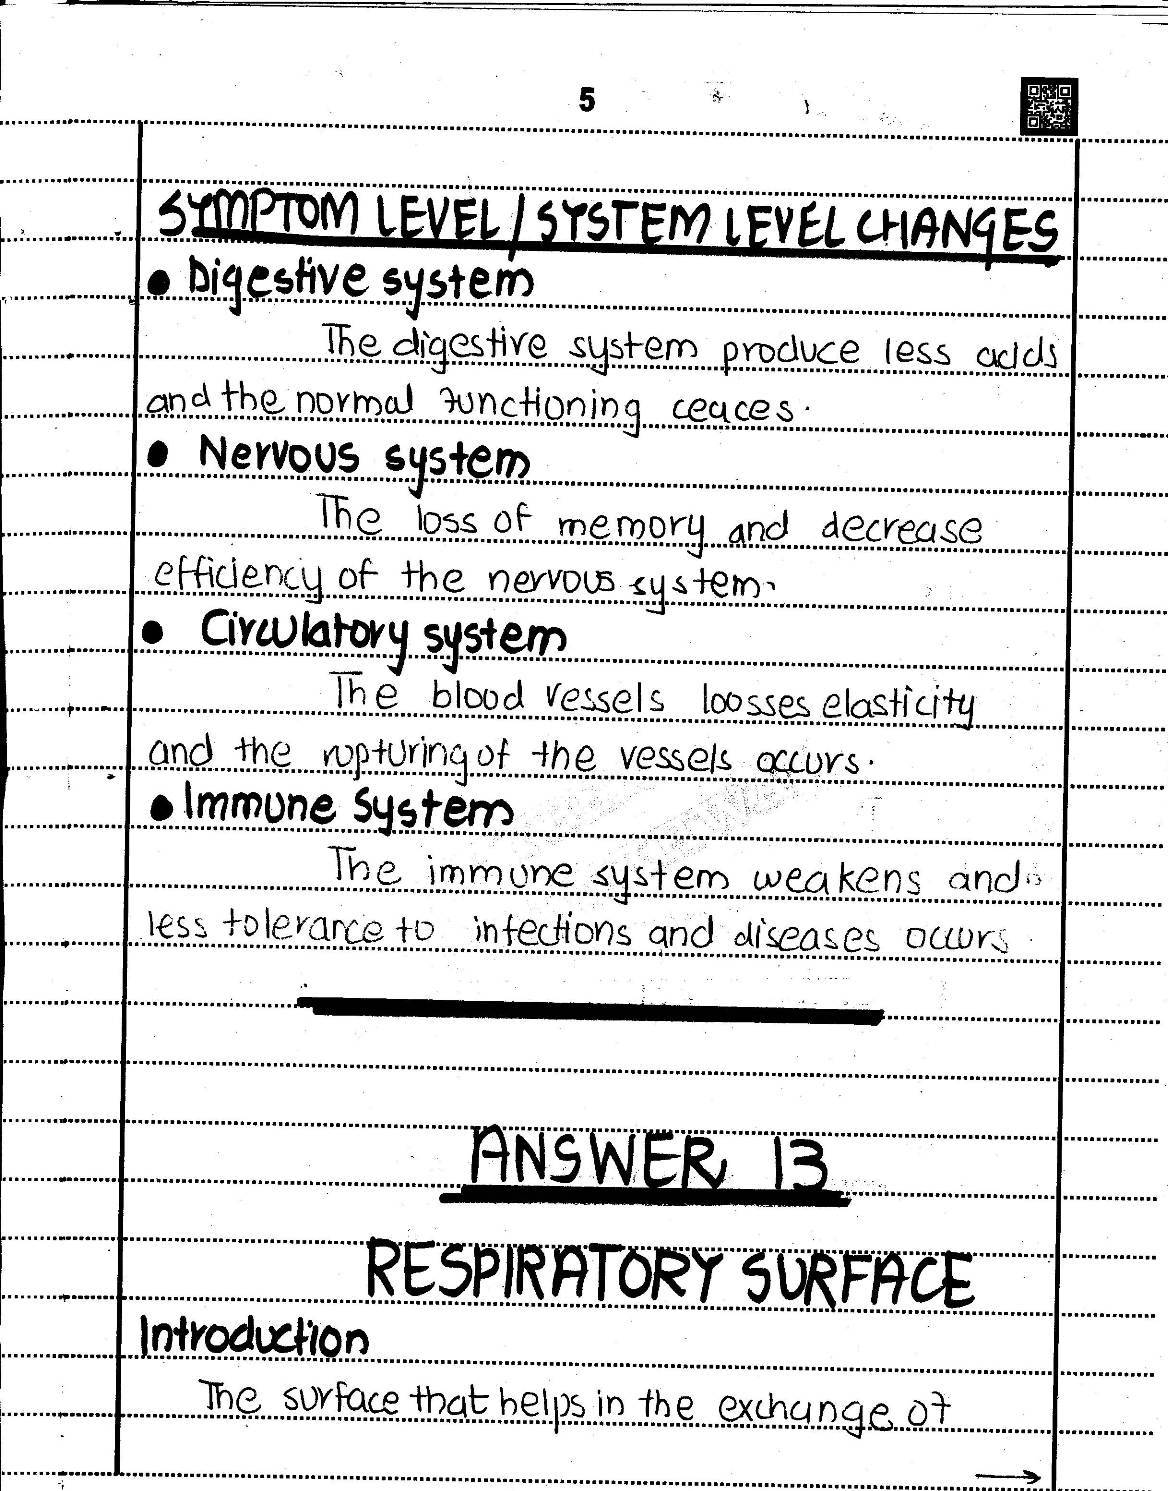 5
SYMPTOM LEVEL / SYSTEM LEVEL CHANGES
• Digestive system
The digestive system produce less acids
and the normal functioning ceaces.
• Nervous system
The loss of memory and decrease
efficiency of the nervous system.
• Circulatory system
The blood vessels loosses elasticity
and the rupturing of the vessels occurs.
• Immune System
The immune system weakens and
less tolerance to infections and diseases occurs
ANSWER 13
RESPIRATORY SURFACE
Introduction
The surface that helps in the exchange of